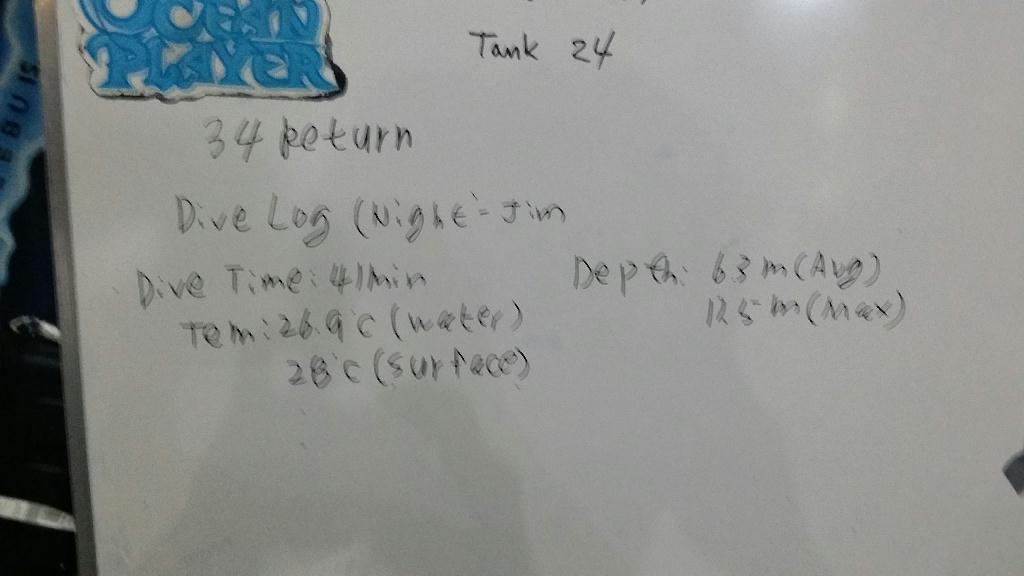 OCEAN
PLAYER
Tank 24
34 Return
Dive Log (Night - Jim
Dive Time: 41min
Depth: 6.3 m (Avg)
Tem: 26.9°C (water)
12.5 m (Max)
28°C (surface)